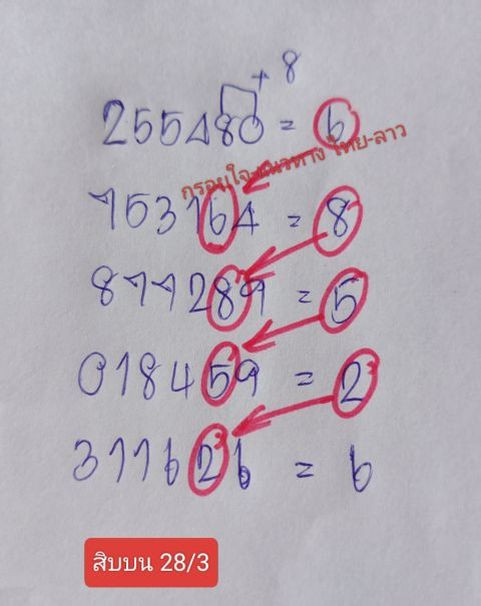 + 8
255480 = 6
กรอบใจ-แนวทาง ไทย-ลาว
753164 = 8
877289 = 5
018459 = 2
311626 = 6
สิบบน 28/3